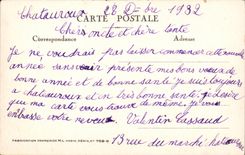 Chateauroux 28 D-bre 1932
CARTE POSTALE
Chers oncle et chère tante
Correspondance Adresse
Je ne voudrais pas laisser commencer cette nouvelle
année sans venir présenté mes bons voeux de
bonne année et de bonne santé je suis toujours
à chateauroux et en très bonne santé je désire
que ma carte vous trouve de même je vous
embrasse votre neveu Valentin
FABRICATION FRANÇAISE
13 rue du marché